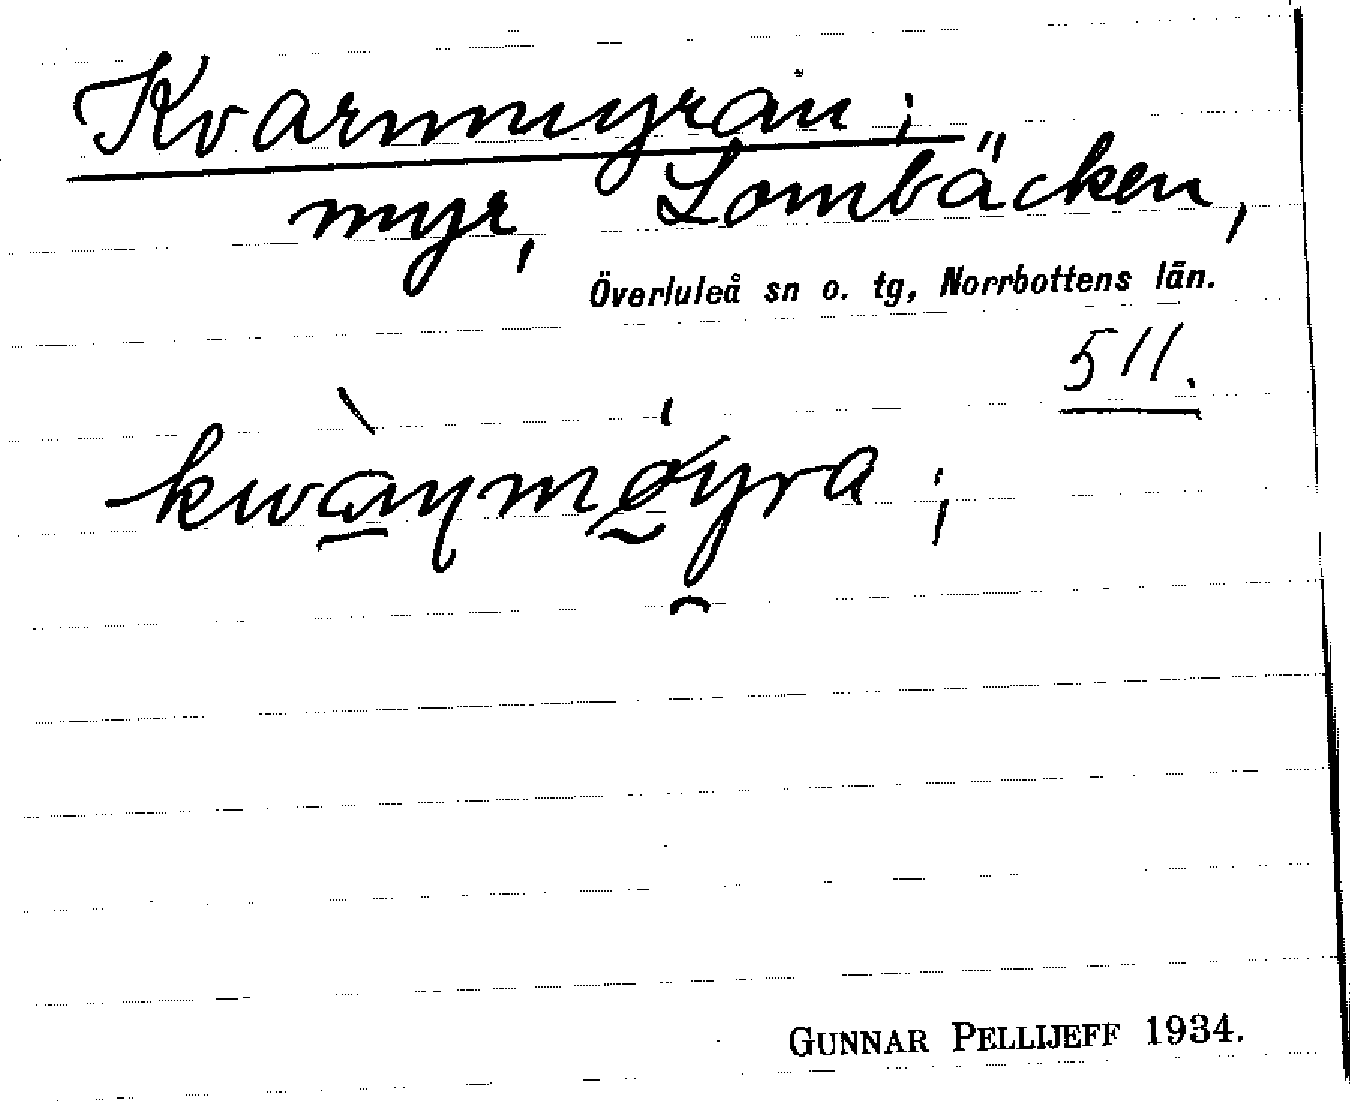 Kvarnmyran;
myr, Lombäcken,
Överluleå sn o. tg, Norrbottens län.
511.
GUNNAR PELLIJEFF 1934.